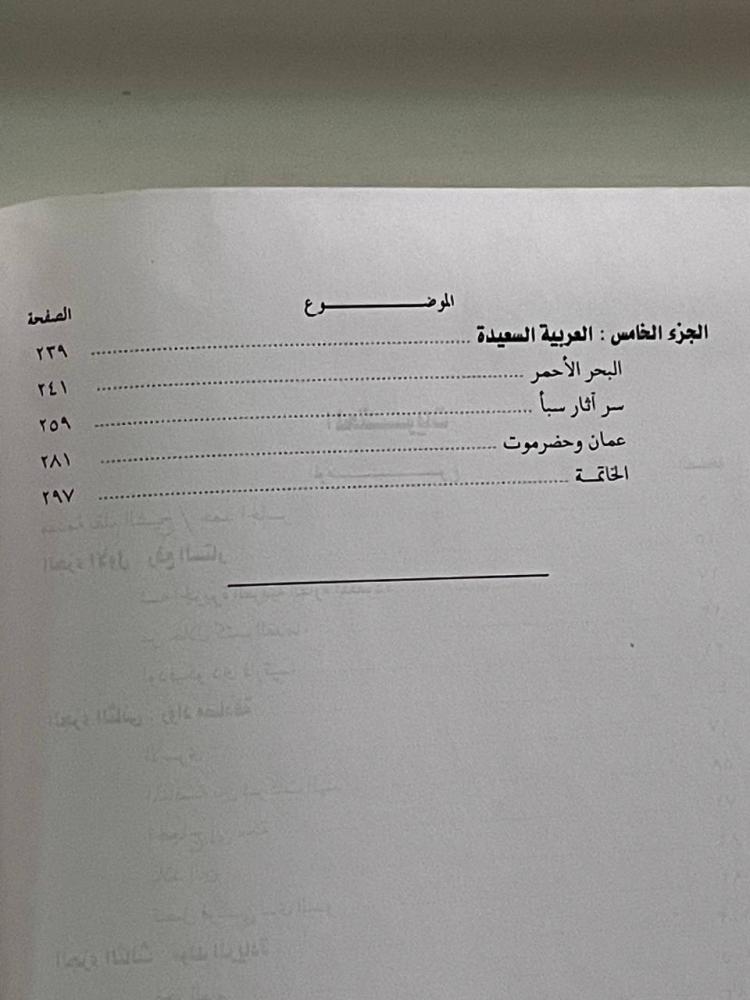 الموضـــــــــــــوع الصفحة
الجزء الخامس : العربية السعيدة ........................................ ٢٣٩
البحر الأحمر ........................................ ٢٤١
سر آثار سبأ ........................................ ٢٥٩
عمان وحضرموت ........................................ ٢٨١
الخاتمـــة ........................................ ٢٩٧